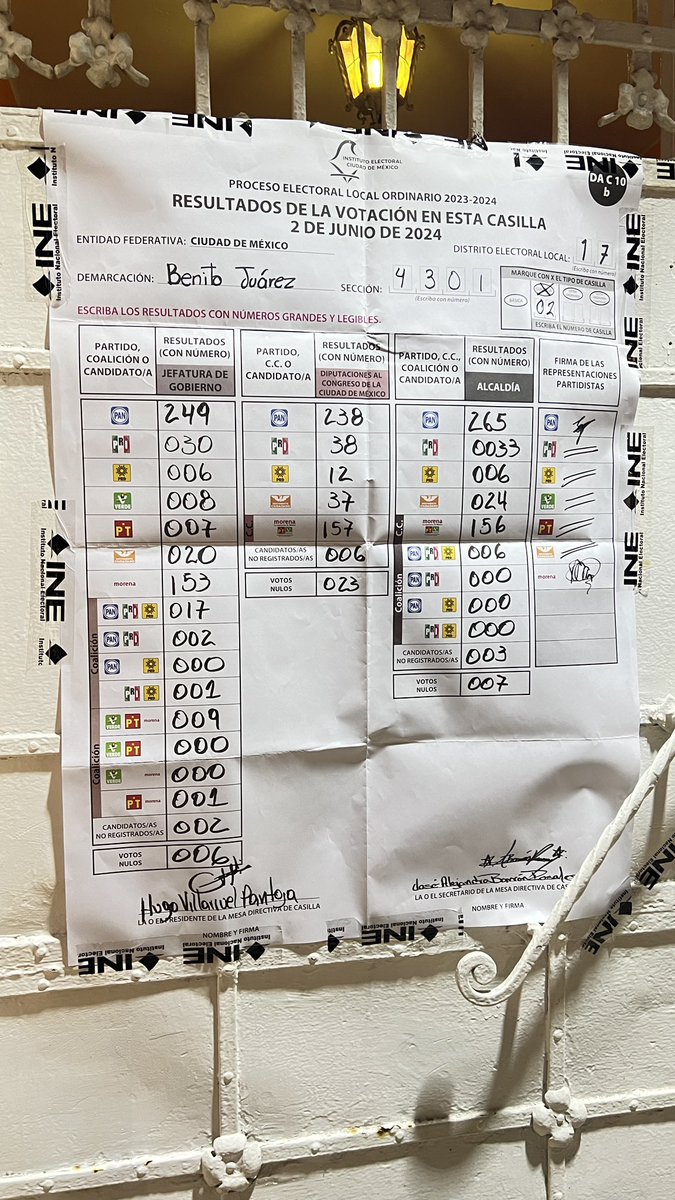 INSTITUTO ELECTORAL
CIUDAD DE MÉXICO
DA C 10
b
PROCESO ELECTORAL LOCAL ORDINARIO 2023-2024
RESULTADOS DE LA VOTACIÓN EN ESTA CASILLA
2 DE JUNIO DE 2024
ENTIDAD FEDERATIVA: CIUDAD DE MÉXICO
DISTRITO ELECTORAL LOCAL: 17
(Escriba con número)
DEMARCACIÓN: Benito Juárez
SECCIÓN: 4301
(Escriba con número)
MARQUE CON X EL TIPO DE CASILLA
X
02
ESCRIBA EL NÚMERO DE CASILLA
ESCRIBA LOS RESULTADOS CON NÚMEROS GRANDES Y LEGIBLES.
PARTIDO, COALICIÓN O CANDIDATO/A
RESULTADOS (CON NÚMERO)
JEFATURA DE GOBIERNO
PAN 249
PRI 030
PRD 006
VERDE 008
PT 007
020
morena 153
Coalición
PAN PRI PRD 017
PAN PRI 002
PAN PRD 000
PRI PRD 001
Coalición
VERDE PT morena 009
VERDE PT 000
VERDE morena 000
PT morena 001
CANDIDATOS/AS NO REGISTRADOS/AS 002
VOTOS NULOS 006
PARTIDO, C.C. O CANDIDATO/A
RESULTADOS (CON NÚMERO)
DIPUTACIONES AL CONGRESO DE LA CIUDAD DE MÉXICO
PAN 238
PRI 38
PRD 12
37
C.C.
morena 157
CANDIDATOS/AS NO REGISTRADOS/AS 006
VOTOS NULOS 023
PARTIDO, C.C., COALICIÓN O CANDIDATO/A
RESULTADOS (CON NÚMERO)
ALCALDÍA
PAN 265
PRI 0033
PRD 006
024
C.C.
morena 156
Coalición
PAN PRI PRD 006
PAN PRI 000
PAN PRD 000
PRI PRD 000
CANDIDATOS/AS NO REGISTRADOS/AS 003
VOTOS NULOS 007
FIRMA DE LAS REPRESENTACIONES PARTIDISTAS
PAN
PRI
PRD
VERDE
PT
morena
Hugo Villarruel Pantoja
LA O EL PRESIDENTE DE LA MESA DIRECTIVA DE CASILLA
NOMBRE Y FIRMA
José Alejandro Barrón
LA O EL SECRETARIO DE LA MESA DIRECTIVA DE CASILLA
NOMBRE Y FIRMA
INE
Instituto Nacional Electoral